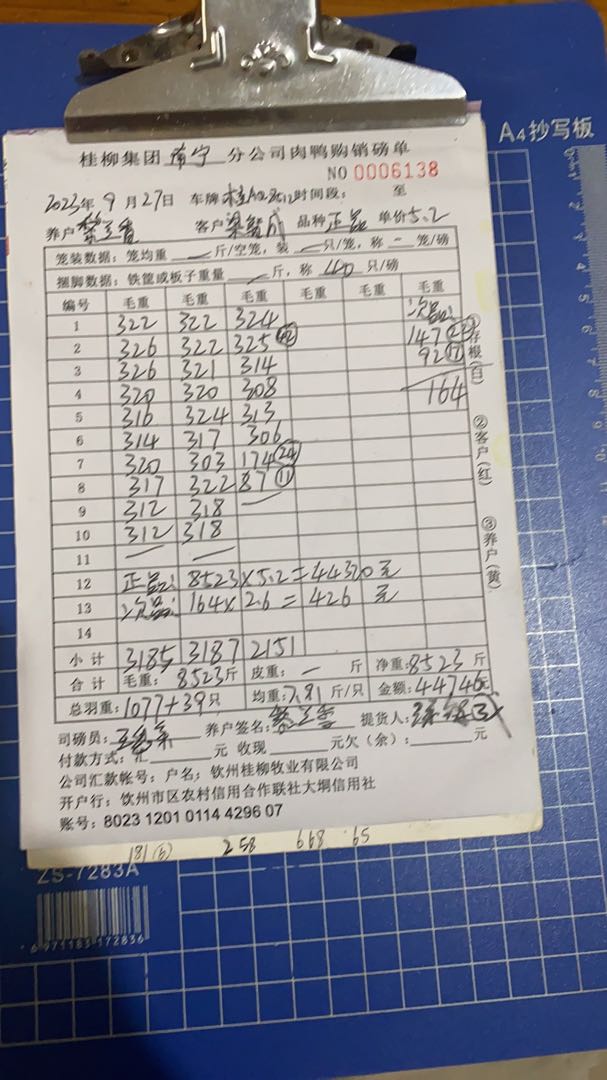 A4抄写板
桂柳集团 南宁 分公司肉鸭购销磅单
NO 0006138
2023年 9月27日 车牌 时间段: 至
养户 客户 品种 正品 单价 5.2
笼装数据: 笼均重 — 斤/空笼, 装 — 只/笼, 称 — 笼/磅
捆脚数据: 铁筐或板子重量 — 斤, 称 只/磅
编号 毛重 毛重 毛重 毛重 毛重 毛重
1 322 322 324 次品:
2 326 322 325 (42) 147 (22)
3 326 321 314 92 (17)
4 320 320 308 164
5 316 324 313
6 314 317 306
7 320 303 174 (24)
8 317 322 87 (11)
9 312 318 —
10 312 318
11 — —
12 正品: 8523×5.2=44320元
13 次品: 164×2.6=426元
14
小计 3185 3187 2151
合计 毛重: 8523斤 皮重: — 斤 净重: 8523斤
总羽重: 1077+39只 均重: 7.91斤/只 金额: 44746元
司磅员: 养户签名: 提货人:
付款方式: 汇 元 收现 元欠(余): 元
公司汇款帐号: 户名: 钦州桂柳牧业有限公司
开户行: 钦州市区农村信用合作联社大垌信用社
账号: 8023 1201 0114 4296 07
①存根(白)
②客户(红)
③养户(黄)
181(6) 258 668 65
ZS-7283A
6 971183 172836